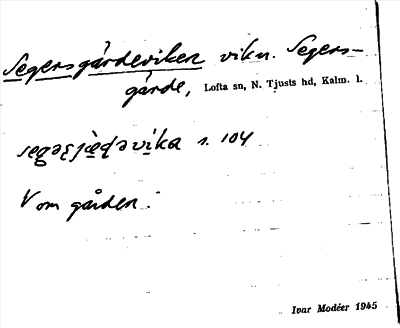 Segersgärdeviken vikn. Segers-
gärde, Lofta sn, N. Tjusts hd, Kalm. l.
s. 104
V om gården.
Ivar Modéer 1945